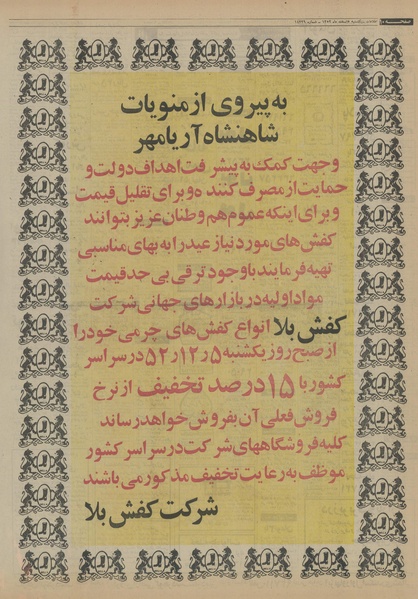 صفحه ۱۰
به پیروی از منویات
شاهنشاه آریامهر
وجهت کمک به پیشرفت اهداف دولت و
حمایت از مصرف کننده و برای تقلیل قیمت
و برای اینکه عموم هم وطنان عزیز بتوانند
کفش های مورد نیاز عید را به بهای مناسبی
تهیه فرمایند با وجود ترقی بی حد قیمت
مواد اولیه در بازارهای جهانی شرکت
کفش بلا انواع کفش های چرمی خود را
از صبح روز یکشنبه ۵ر۱۲ر۵۲ در سراسر
کشور با ۱۵ درصد تخفیف از نرخ
فروش فعلی آن بفروش خواهد رساند
کلیه فروشگاههای شرکت در سراسر کشور
موظف به رعایت تخفیف مذکور می باشند
شرکت کفش بلا